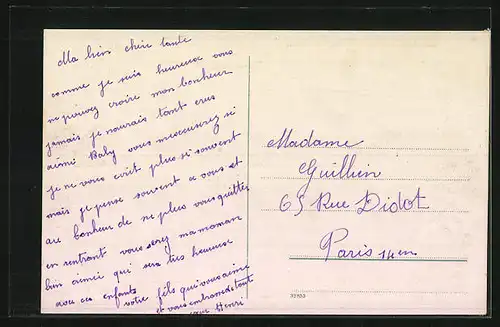 Ma bien chère tante
comme je suis heureux vous
ne pouvez croire mon bonheur
jamais je n'aurais tant crus
aimé Baby vous m'excuserez si
je ne vous ecrit plus si souvent
mais je pense souvent a vous et
au bonheur de ne plus vous quitter
en rentrant vous serez ma maman
bien aimée qui sera tres heureuse
avec ces enfants votre fils qui vous aime
et vous embrasse de tout
Henri
Madame
Guillien
63 Rue Didot
Paris 14em